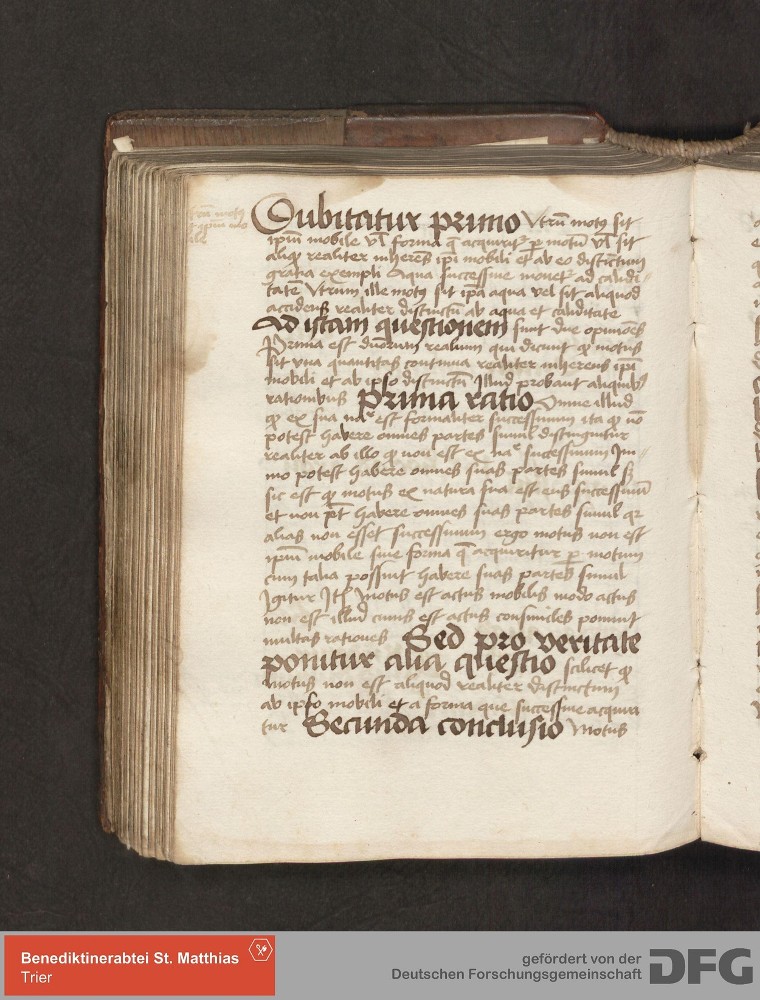 Dubitatur primo Vtrū motꝯ sit
ipm̄ mobile vl̄ forma q̄ acquirit᷑ ꝑ motū vl̄ sit
aliqͩ realiter inherēs ipi mobili et ab eo distinctum
gratia exempli Aqua successiue mouet᷑ ad calidi-
tatē Vtrum ille motꝯ sit ipā aqua vel sit aliquod
accidens realiter distinctū ab aqua et caliditate
Ad istam questionem sunt due opinioēs
Prima est duorum realium qui dicunt ꝙ motus
sit vna quantitas continua realiter inherens ipī
mobili et ab ipso distinctū Illud probant aliquibꝯ
rationibus Prima ratio Omne illud
ꝙ ex sua naͤ est formaliter successiuum ita ꝙ nō
potest habere omnes partes simul distinguitur
realiter ab illo ꝙ non est ex naͤ successiuum Im-
mo potest habere omnes suas partes simul sꝫ
sic est ꝙ motus ex natura sua est ens successiuū
et non pt̄ habere omnes suas partes simul qꝛ
alias non esset successiuum ergo motus non est
ipm̄ mobile siue forma q̄ acquiritur ꝑ motum
cum talia possunt habere suas partes simul
Igitur Itē motus est actus mobilis modo actus
non est illud cuius est actus consimiles ponunt
multas rationes Sed pro veritate
ponitur alia questio scilicet ꝙ
motus non est aliquod realiter distinctum
ab ipso mobili et a forma que successiue acquiri
tur Secunda conclusio Motus
Benediktinerabtei St. Matthias
Trier
gefördert von der
Deutschen Forschungsgemeinschaft
DFG